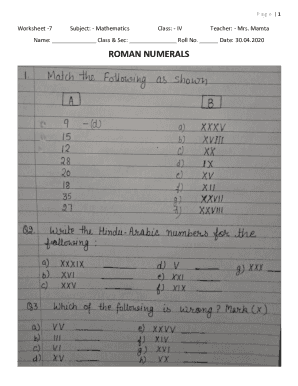 Page | 1
Worksheet -7 Subject: - Mathematics Class: - IV Teacher: - Mrs. Mamta
Name: ____________ Class & Sec: ____________ Roll No. ______ Date: 30.04.2020
ROMAN NUMERALS
1. Match the Following as shown
A B
9 -(d) a) XXXV
15 b) XVIII
12 c) XX
28 d) IX
20 e) XV
18 f) XII
35 g) XXVII
27 h) XXVIII
Q2. Write the Hindu-Arabic numbers for the
following :
a) XXXIX ____ d) V ____ g) XXX ____
b) XVI ____ e) XXI ____
c) XXV ____ f) XIX ____
Q3 Which of the following is wrong? Mark (X).
a) VV ____ e) XXVV ____
b) III ____ f) XIV ____
c) VI ____ g) XVI ____
d) XV ____ h) VX ____